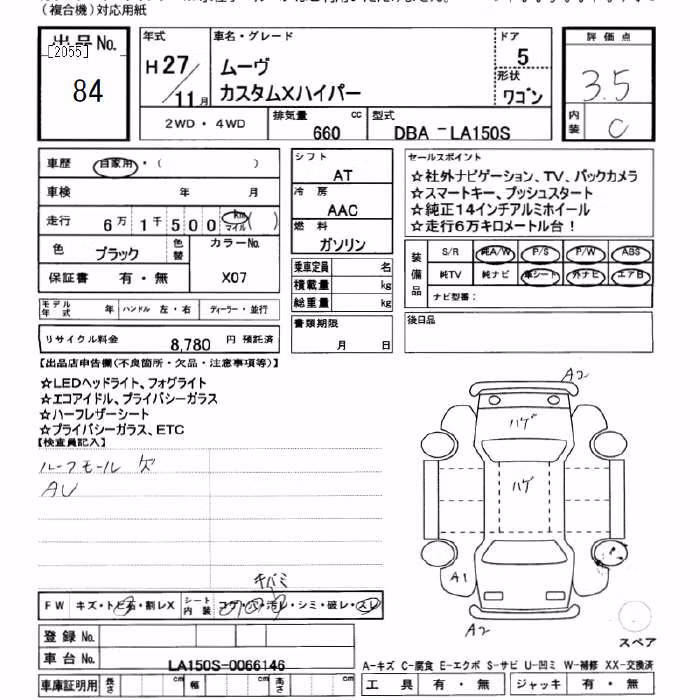 （複合機）対応用紙
出品No.
[2055]
84
年式
H27/11月
車名・グレード
ムーヴ
カスタムXハイパー
ドア
5
形状
ワゴン
評価点
3.5
内装
C
2WD・4WD
排気量
660 cc
型式
DBA-LA150S
車歴
自家用・(　　)
車検
年　月
走行
6万1千500
km
マイル
(　)
色
ブラック
色替
カラーNo.
X07
保証書
有・無
シフト
AT
冷房
AAC
燃料
ガソリン
乗車定員 名
積載量 kg
総重量 kg
書類期限
月　日
セールスポイント
☆社外ナビゲーション、TV、バックカメラ
☆スマートキー、プッシュスタート
☆純正14インチアルミホイール
☆走行6万キロメートル台！
装備品
S/R 純A/W P/S P/W ABS
純TV 純ナビ 革シート 外ナビ エアB
ナビ型番：
後日品
モデル年式 年 ハンドル 左・右 ディーラー・並行
リサイクル料金 8,780 円 預託済
【出品店申告欄(不良箇所・欠品・注意事項等)】
☆LEDヘッドライト、フォグライト
☆エコアイドル、プライバシーガラス
☆ハーフレザーシート
☆プライバシーガラス、ETC
【検査員記入】
ルーフモール ズ
AU
A2
ハゲ
ハゲ
A1
A2
スペア
キバミ
FW キズ・トビ石・割レX
シート内装 コゲ・穴・汚レ・シミ・破レ・スレ
登録No.
車台No.
LA150S-0066146
車庫証明用 長さ cm 幅 cm 高さ cm
A-キズ C-腐食 E-エクボ S-サビ U-凹ミ W-補修 XX-交換済
工具 有・無 ジャッキ 有・無